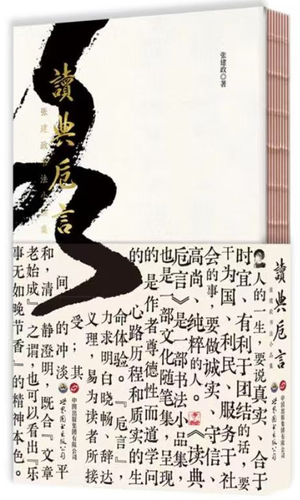 张建政◎著
讀典卮言
张建政书法小品集
人的一生，要说真实、合于
时宜、有利于团结的话，要
干为国、利民、服务于社
会的事，要做诚实、守信、
高尚、纯粹的人。《读典
卮言》是一部书法小品集，
也是一部文化随笔集，呈现
的是作者尊德性而道学问
的心路历程和质实的生
命体验。『卮言』，
力求明白晓畅、辞达
义理，易为读者所接
受，其
间的冲淡、平
和，清静澄明，既合『文章
老始成』之谓，也可以看出『乐
事无如晚节香』的精神本色。
中国出版集团有限公司
世界图书出版公司
讀典卮言
张建政书法小品集
中国出版集团有限公司
世界图书出版公司